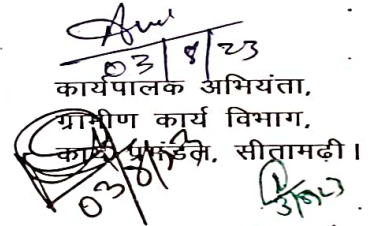 03/8/23
कार्यपालक अभियंता,
ग्रामीण कार्य विभाग,
कार्य प्रमंडल, सीतामढ़ी।
03/8/23
3/8/23